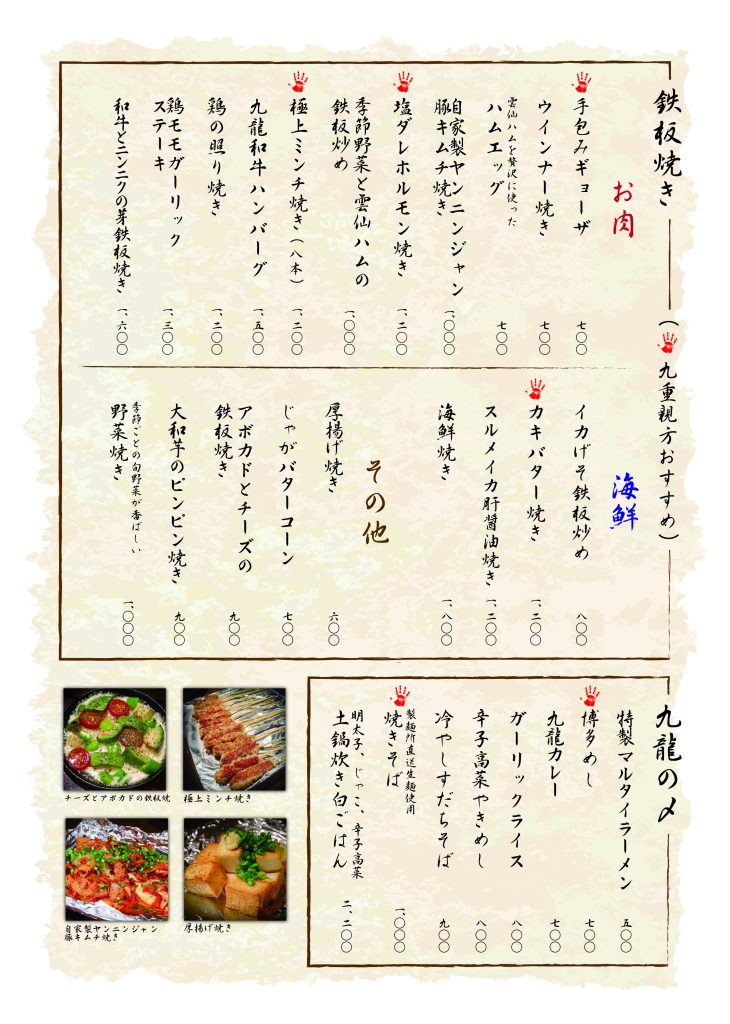 鉄板焼き
（九重親方おすすめ）
お肉
手包みギョーザ
七〇〇
ウインナー焼き
七〇〇
雲仙ハムを贅沢に使った
ハムエッグ
七〇〇
自家製ヤンニンジャン
豚キムチ焼き
一、〇〇〇
塩ダレホルモン焼き
一、二〇〇
季節野菜と雲仙ハムの
鉄板炒め
一、〇〇〇
極上ミンチ焼き（八本）
一、二〇〇
九龍和牛ハンバーグ
一、五〇〇
鶏の照り焼き
一、二〇〇
鶏モモガーリック
ステーキ
一、三〇〇
和牛とニンニクの芽鉄板焼き
一、六〇〇
海鮮
イカげそ鉄板炒め
八〇〇
カキバター焼き
一、二〇〇
スルメイカ肝醤油焼き
一、二〇〇
海鮮焼き
一、八〇〇
その他
厚揚げ焼き
六〇〇
じゃがバターコーン
七〇〇
アボカドとチーズの
鉄板焼き
九〇〇
大和芋のピンピン焼き
九〇〇
季節ごとの旬野菜が香ばしい
野菜焼き
一、〇〇〇
九龍の〆
特製マルタイラーメン
五〇〇
博多めし
七〇〇
九龍カレー
七〇〇
ガーリックライス
八〇〇
辛子高菜やきめし
八〇〇
冷やしすだちそば
九〇〇
製麺所直送生麺使用
焼きそば
一、〇〇〇
明太子、じゃこ、辛子高菜
土鍋炊き白ごはん
二、二〇〇
チーズとアボカドの鉄板焼
極上ミンチ焼き
自家製ヤンニンジャン
豚キムチ焼き
厚揚げ焼き